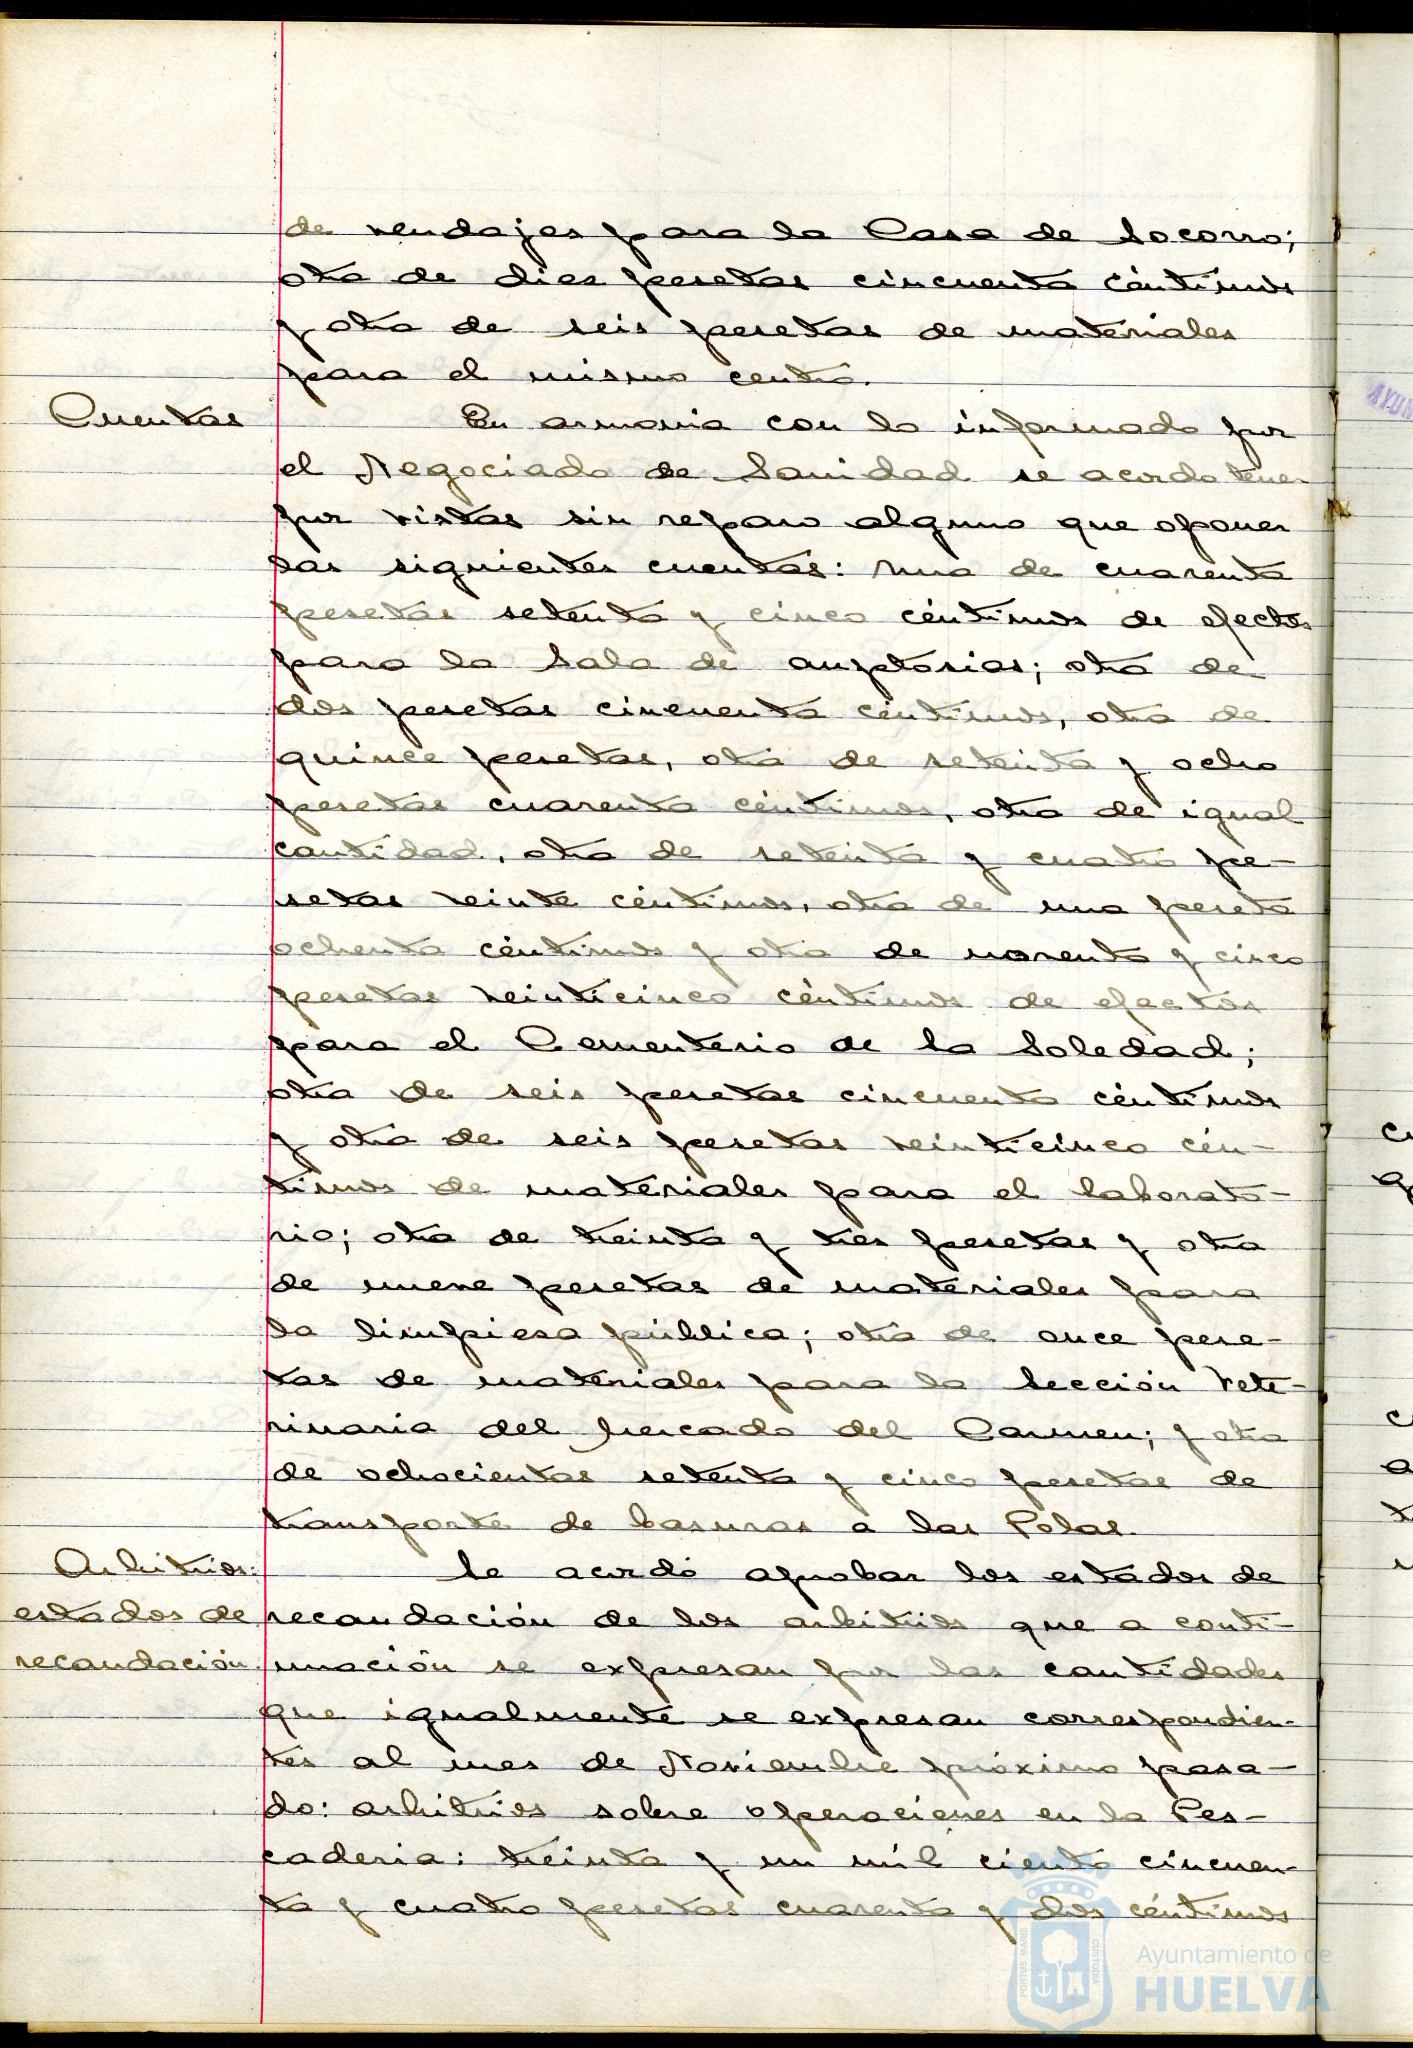 de vendajes para la Casa de Socorro;
otra de diez pesetas cincuenta céntimos
y otra de seis pesetas de materiales
para el mismo centro.
Cuentas
En armonia con lo informado por
el Negociado de Sanidad se acordo tener
por vistas sin reparo alguno que oponer
las siguientes cuentas: una de cuarenta
pesetas setenta y cinco céntimos de efectos
para la Sala de auptosias; otra de
dos pesetas cincuenta céntimos, otra de
quince pesetas, otra de setenta y ocho
pesetas cuarenta céntimos, otra de igual
cantidad, otra de setenta y cuatro pe-
setas veinte céntimos, otra de una peseta
ochenta céntimos y otra de noventa y cinco
pesetas veinticinco céntimos de efectos
para el Cementerio de la Soledad;
otra de seis pesetas cincuenta céntimos
y otra de seis pesetas veinticinco cén-
timos de materiales para el laborato-
rio; otra de treinta y tres pesetas y otra
de nueve pesetas de materiales para
la limpiesa pública; otra de once pese-
tas de materiales para la Sección Vete-
rinaria del Mercado del Carmen; y otra
de ochocientas setenta y cinco pesetas de
transporte de basuras a las Polas.
Arbitrios:
estados de
recaudación
Se acordó aprobar los estados de
recaudación de los arbitrios que a conti-
nuación se expresan por las cantidades
que igualmente se expresan correspondien-
tes al mes de Noviembre próximo pasa-
do: arbitrios sobre operaciones en la Pes-
caderia: treinta y un mil ciento cincuen-
ta y cuatro pesetas cuarenta y dos céntimos
PORTUS MARIS CUSTODIA
Ayuntamiento de
HUELVA